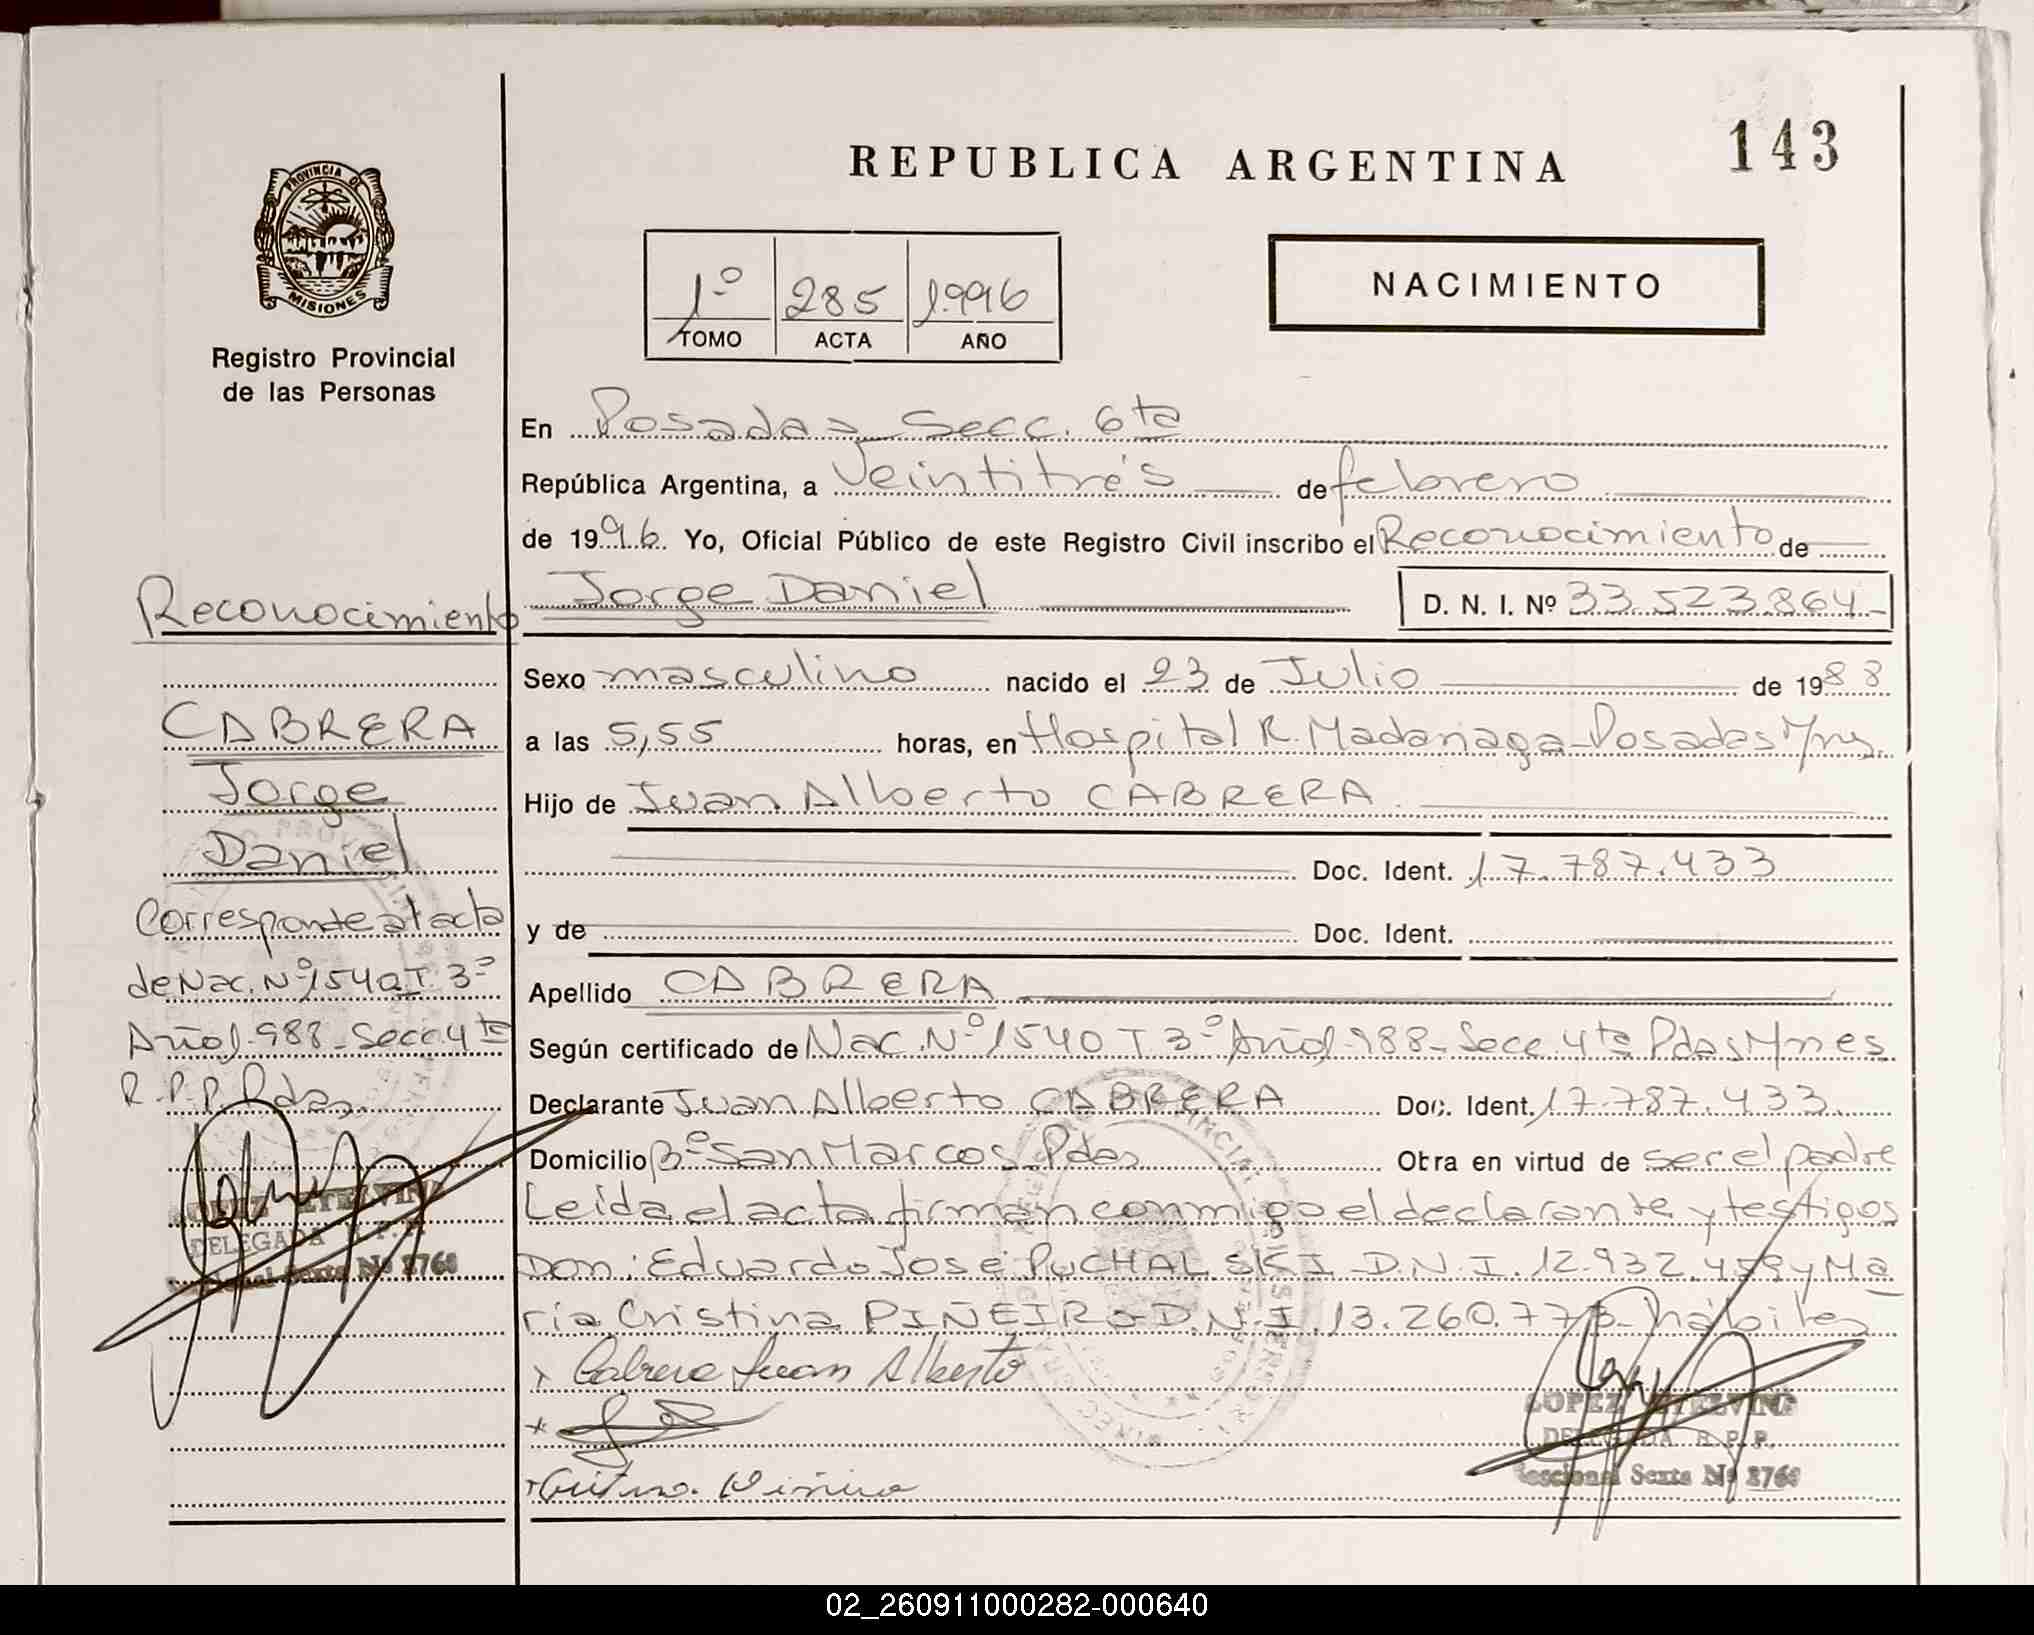 143
REPUBLICA ARGENTINA
PROVINCIA DE
MISIONES
Registro Provincial
de las Personas
1º 285 1.996
TOMO ACTA AÑO
NACIMIENTO
En Posadas Secc. 6ta
República Argentina, a Veintitrés de febrero
de 1996. Yo, Oficial Público de este Registro Civil inscribo el Reconocimiento de
Jorge Daniel D. N. I. Nº 33.523.864-
Sexo masculino nacido el 23 de Julio de 1988
a las 5,55 horas, en Hospital R. Madariaga-Posadas Mns.
Hijo de Juan Alberto CABRERA.
Doc. Ident. 17.787.433
y de Doc. Ident.
Apellido CABRERA
Según certificado de Nac. Nº 1540 T 3º Año 1.988- Secc. 4ta Pdas Mnes
Declarante Juan Alberto CABRERA Doc. Ident. 17.787.433.
Domicilio Bº San Marcos. Pdas Otra en virtud de ser el padre
Leída el acta firman conmigo el declarante y testigos
Don: Eduardo José PUCHALSKI D.N.I. 12.932.459 y Ma
ría Cristina PIÑEIRO D.N.I. 13.260.773- hábiles
x Cabrera Juan Alberto
LOPEZ ETELVINA
DELEGADA R. P. P.
Seccional Sexta Nº 2768
Reconocimiento
CABRERA
Jorge
Daniel
Corresponde al acta
de Nac. Nº 1540 T. 3º
Año 1.988- Secc. 4ta
R.P.P. Pdas
LOPEZ ETELVINA
DELEGADA R. P. P.
Seccional Sexta Nº 2768
02_260911000282-000640